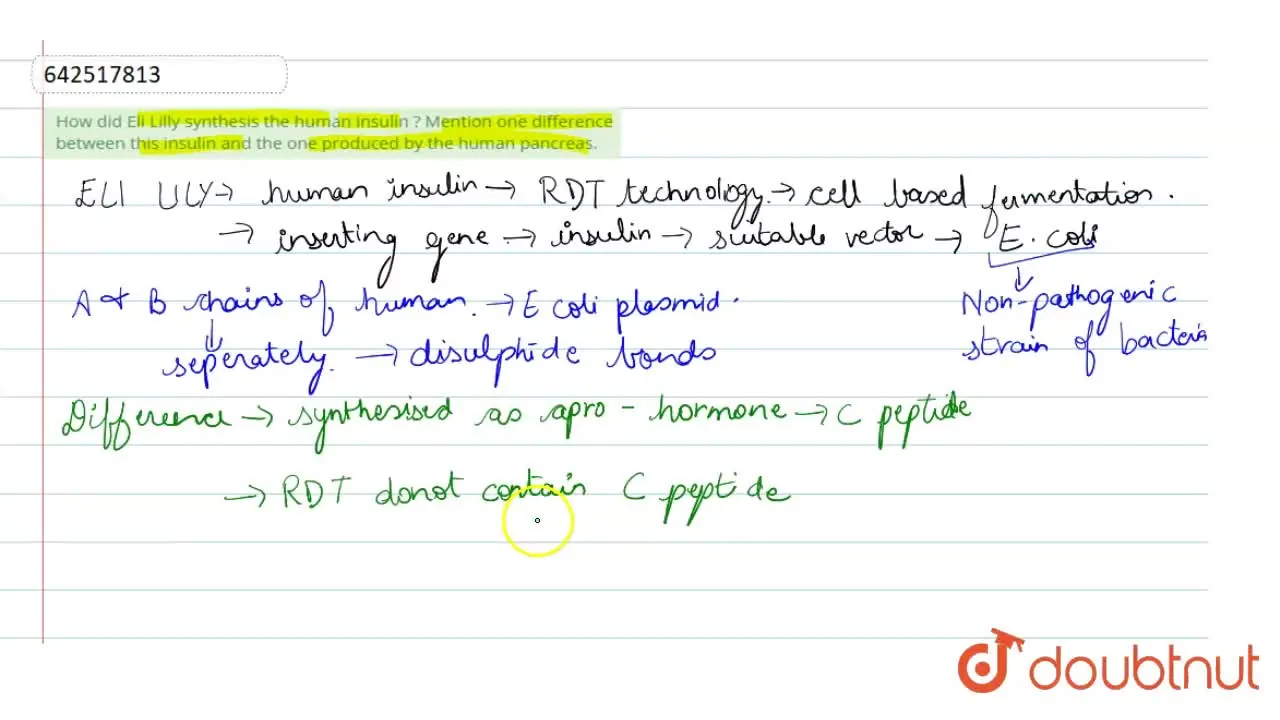 642517813
How did Eli Lilly synthesis the human insulin ? Mention one difference
between this insulin and the one produced by the human pancreas.
ELI LILY → human insulin → RDT technology. → cell based fermentation.
→ inserting gene → insulin → suitable vector → E. coli
A & B chains of human. → E coli plasmid.
Non-pathogenic
strain of bacteria
↓
seperately. → disulphide bonds
Difference → synthesised as apro - hormone → C peptide
→ RDT donot contain C peptide
doubtnut